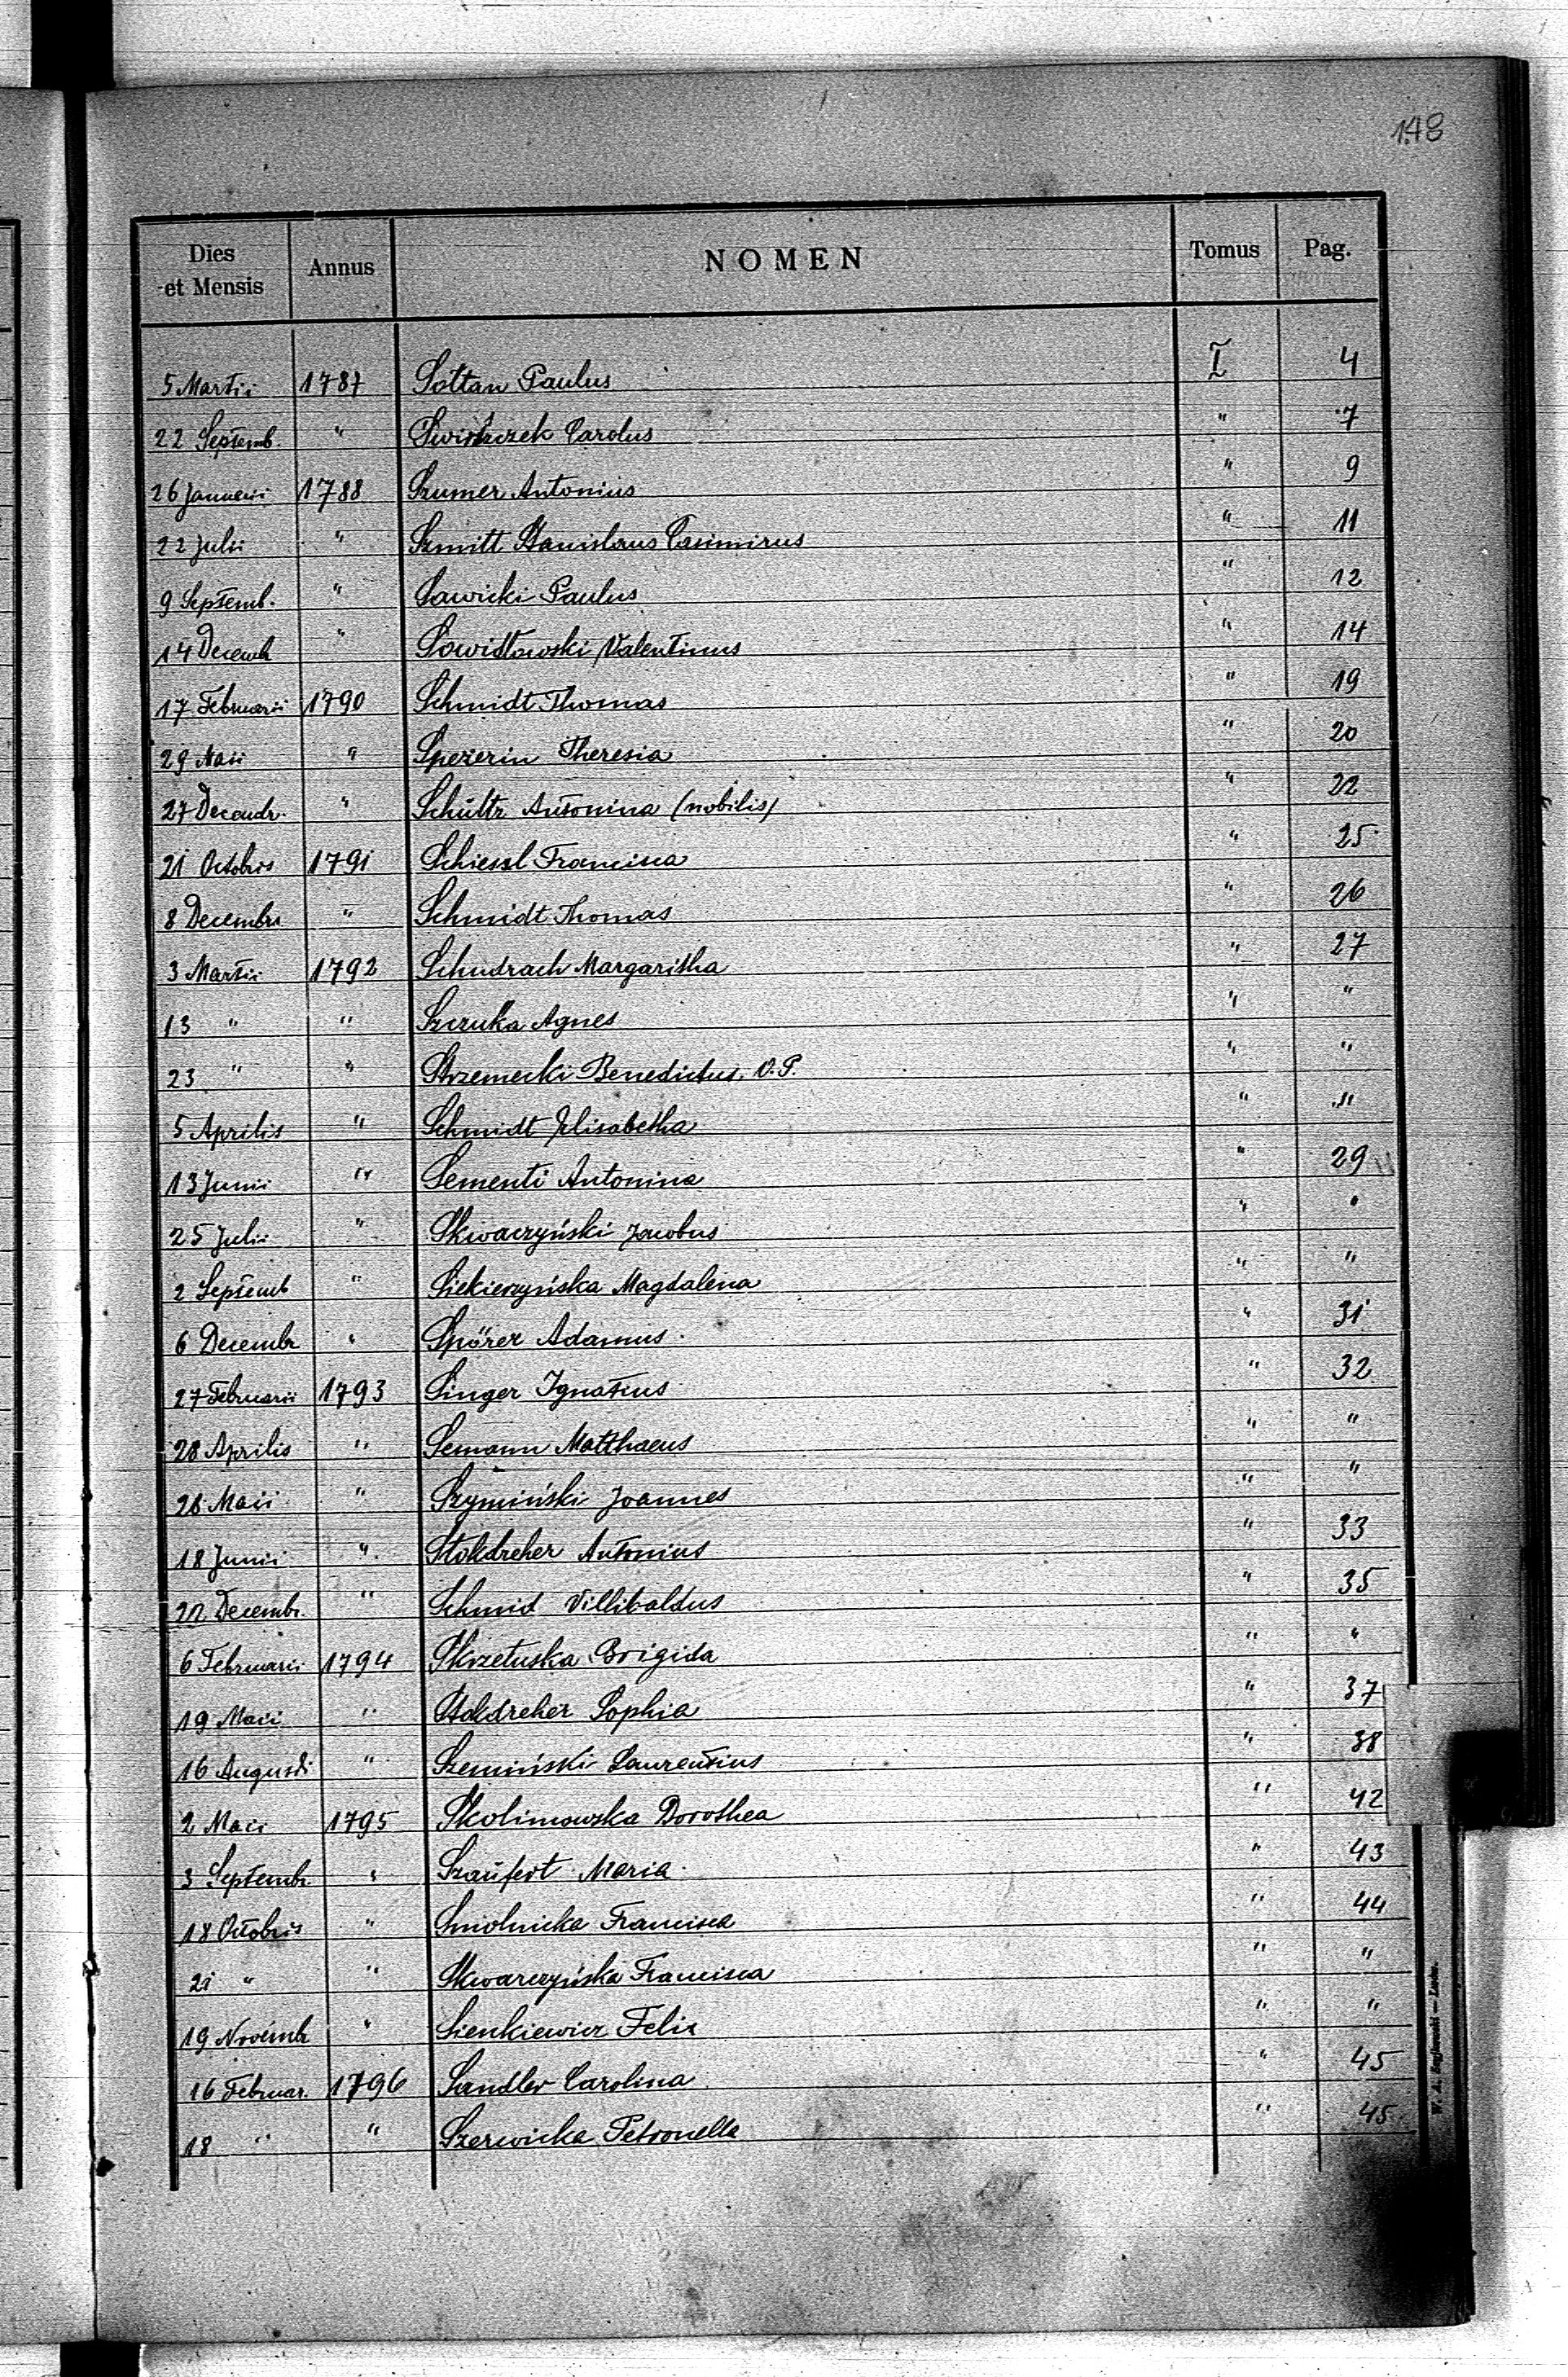 148
Dies et Mensis Annus NOMEN Tomus Pag.
5 Martii 1787 Sołtan Paulus I 4
22 Septemb. " Carolus " 7
26 Januarii 1788 Szumer Antonius " 9
22 Julii " Szmitt Stanislaus Casimirus " 11
9 Septemb. " Sawicki Paulus " 12
14 Decemb " Valentinus " 14
17 Februarii 1790 Schmidt Thomas " 19
29 Maii " Theresia " 20
27 Decembr. " Schültz Antonina (nobilis) " 22
21 Octobris 1791 Schiessl Francisca " 25
8 Decembris " Schmidt Thomas " 26
3 Martii 1792 Schudrach Margaritha " 27
13 " " Szczuka Agnes " "
23 " " Strzemecki Benedictus, O.P. " "
5 Aprilis " Schmidt Elisabetha " "
13 Junii " Sementi Antonina " 29
25 Julii " Skwaczyński Jacobus " "
2 Septemb " Siekierzyńska Magdalena " "
6 Decembr " Spörer Adamus " 31
27 Februarii 1793 Singer Ignatius " 32
28 Aprilis " Semann Matthaeus " "
28 Maii " Szymiński Joannes " "
18 Junii " Stoldreher Antonius " 33
22 Decembr. " Schmid Villibaldus " 35
6 Februarii 1794 Skrzetuska Brigida " "
19 Maii " Stoldreher Sophia " 37
16 Augusti " Szemiński Laurentius " 38
2 Maii 1795 Skolimowska Dorothea " 42
3 Septembr. " Szaufert Maria " 43
18 Octobris " Smolnicka Francisca " 44
21 " " Skwarczyńska Francisca " "
19 Novembr " Sienkiewicz Felix " "
16 Februar. 1796 Sandler Carolina " 45
18 " " Szerwicka Petronella " 45